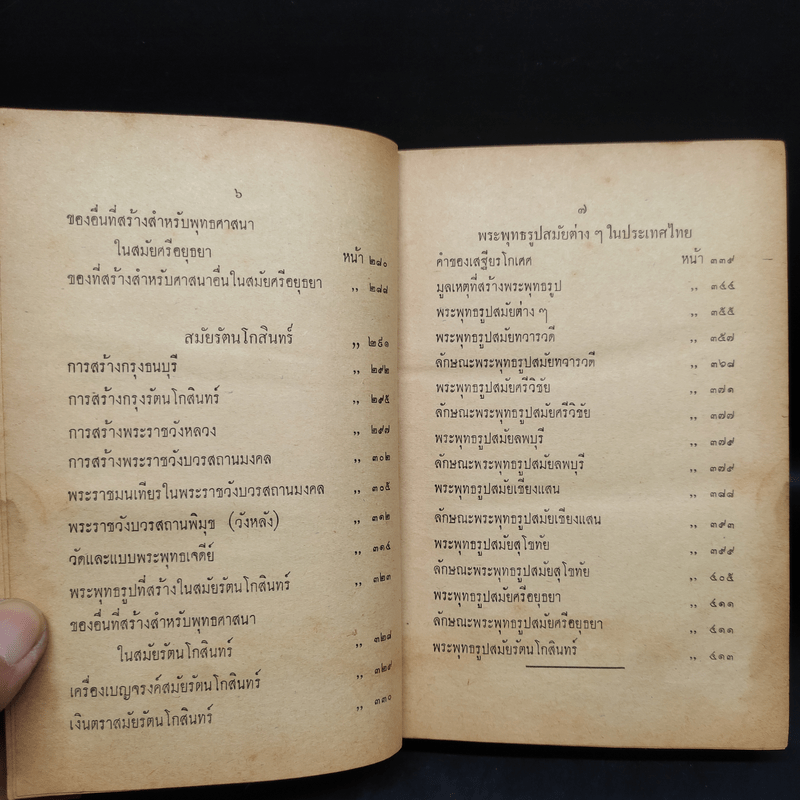 ๖
ของอื่นที่สร้างสำหรับพุทธศาสนา
ในสมัยศรีอยุธยา หน้า ๒๘๐
ของที่สร้างสำหรับศาสนาอื่นในสมัยศรีอยุธยา ,, ๒๘๘
สมัยรัตนโกสินทร์ ,, ๒๙๑
การสร้างกรุงธนบุรี ,, ๒๙๒
การสร้างกรุงรัตนโกสินทร์ ,, ๒๙๕
การสร้างพระราชวังหลวง ,, ๒๙๗
การสร้างพระราชวังบวรสถานมงคล ,, ๓๐๒
พระราชมนเทียรในพระราชวังบวรสถานมงคล ,, ๓๐๕
พระราชวังบวรสถานพิมุข (วังหลัง) ,, ๓๑๒
วัดและแบบพระพุทธเจดีย์ ,, ๓๑๔
พระพุทธรูปที่สร้างในสมัยรัตนโกสินทร์ ,, ๓๒๓
ของอื่นที่สร้างสำหรับพุทธศาสนา
ในสมัยรัตนโกสินทร์ ,, ๓๒๘
เครื่องเบญจรงค์สมัยรัตนโกสินทร์ ,, ๓๒๙
เงินตราสมัยรัตนโกสินทร์ ,, ๓๓๐
๗
พระพุทธรูปสมัยต่าง ๆ ในประเทศไทย
คำของเสฐียรโกเศศ หน้า ๓๓๙
มูลเหตุที่สร้างพระพุทธรูป ,, ๓๔๔
พระพุทธรูปสมัยต่าง ๆ ,, ๓๕๕
พระพุทธรูปสมัยทวารวดี ,, ๓๕๗
ลักษณะพระพุทธรูปสมัยทวารวดี ,, ๓๖๘
พระพุทธรูปสมัยศรีวิชัย ,, ๓๗๑
ลักษณะพระพุทธรูปสมัยศรีวิชัย ,, ๓๗๗
พระพุทธรูปสมัยลพบุรี ,, ๓๗๙
ลักษณะพระพุทธรูปสมัยลพบุรี ,, ๓๗๙
พระพุทธรูปสมัยเชียงแสน ,, ๓๘๘
ลักษณะพระพุทธรูปสมัยเชียงแสน ,, ๓๙๓
พระพุทธรูปสมัยสุโขทัย ,, ๓๙๙
ลักษณะพระพุทธรูปสมัยสุโขทัย ,, ๔๐๕
พระพุทธรูปสมัยศรีอยุธยา ,, ๔๑๑
ลักษณะพระพุทธรูปสมัยศรีอยุธยา ,, ๔๑๑
พระพุทธรูปสมัยรัตนโกสินทร์ ,, ๔๑๓